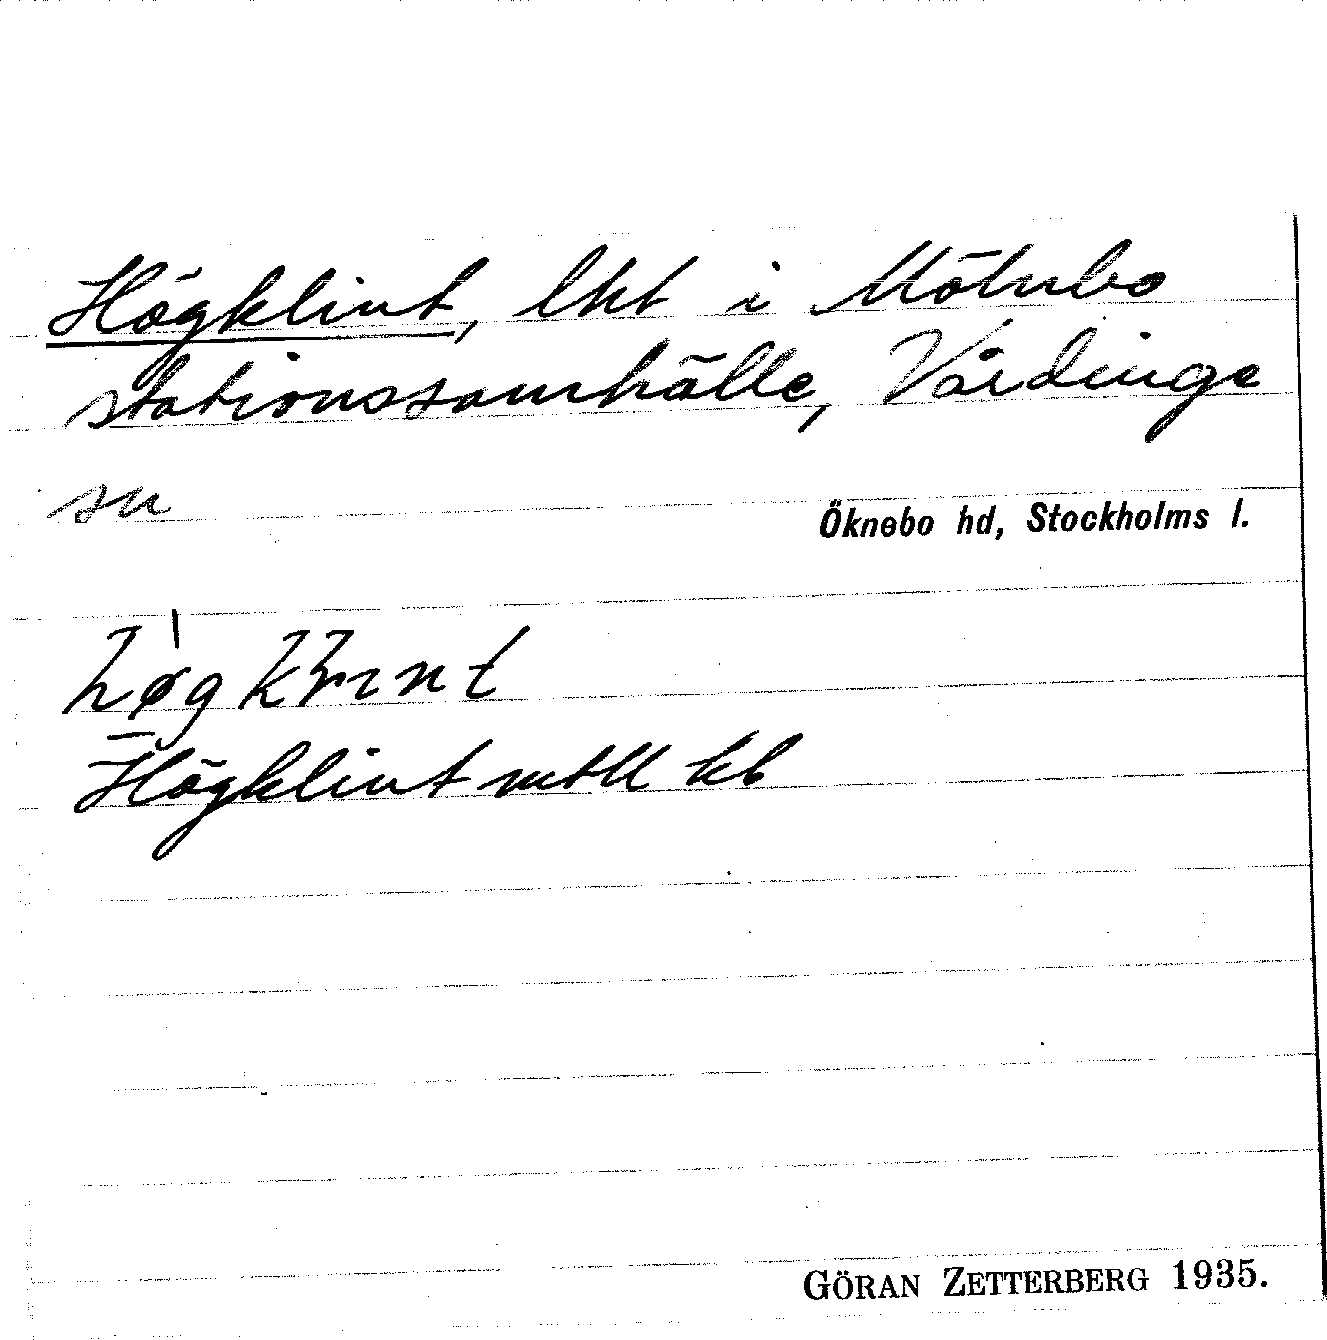 Högklint, lht i Mölnbo
stationssamhälle, Vårdinge
sn
Öknebo hd, Stockholms l.
Högklint mtll kb
GÖRAN ZETTERBERG 1935.